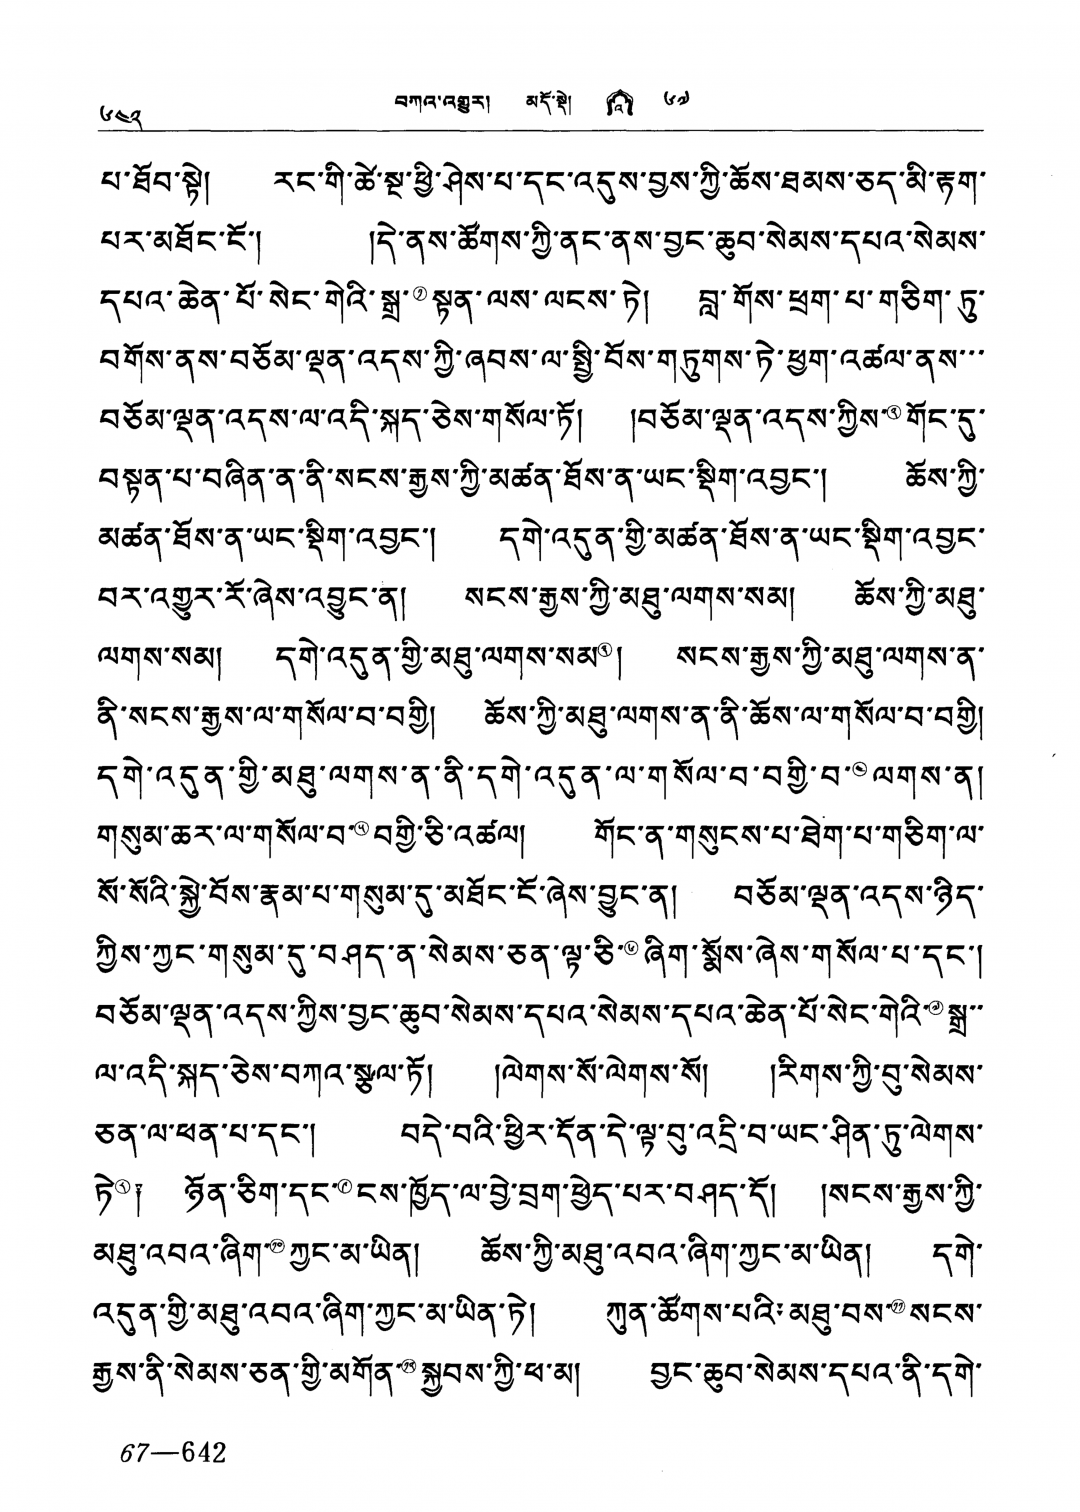 ༦༤༢ བཀའ་འགྱུར། མདོ་སྡེ། ༦༧
པ་ཐོབ་སྟེ། རང་གི་ཚེ་སྔ་ཕྱི་ཤེས་པ་དང་འདུས་བྱས་ཀྱི་ཆོས་ཐམས་ཅད་མི་རྟག་
པར་མཐོང་ངོ་། །དེ་ནས་ཚོགས་ཀྱི་ནང་ནས་བྱང་ཆུབ་སེམས་དཔའ་སེམས་
དཔའ་ཆེན་པོ་སེང་གེའི་སྒྲ་①སྟན་ལས་ལངས་ཏེ། བླ་གོས་ཕྲག་པ་གཅིག་ཏུ་
བགོས་ནས་བཅོམ་ལྡན་འདས་ཀྱི་ཞབས་ལ་སྤྱི་བོས་གཏུགས་ཏེ་ཕྱག་འཚལ་ནས་··
བཅོམ་ལྡན་འདས་ལ་འདི་སྐད་ཅེས་གསོལ་ཏོ། །བཅོམ་ལྡན་འདས་ཀྱིས་②གོང་དུ་
བསྟན་པ་བཞིན་ན་ནི་སངས་རྒྱས་ཀྱི་མཚན་ཐོས་ན་ཡང་སྡིག་འབྱང་། ཆོས་ཀྱི་
མཚན་ཐོས་ན་ཡང་སྡིག་འབྱང་། དགེ་འདུན་གྱི་མཚན་ཐོས་ན་ཡང་སྡིག་འབྱང་
བར་འགྱུར་རོ་ཞེས་འབྱུང་ན། སངས་རྒྱས་ཀྱི་མཐུ་ལགས་སམ། ཆོས་ཀྱི་མཐུ་
ལགས་སམ། དགེ་འདུན་གྱི་མཐུ་ལགས་སམ③། སངས་རྒྱས་ཀྱི་མཐུ་ལགས་ན་
ནི་སངས་རྒྱས་ལ་གསོལ་བ་བགྱི། ཆོས་ཀྱི་མཐུ་ལགས་ན་ནི་ཆོས་ལ་གསོལ་བ་བགྱི།
དགེ་འདུན་གྱི་མཐུ་ལགས་ན་ནི་དགེ་འདུན་ལ་གསོལ་བ་བགྱི་བ་④ལགས་ན།
གསུམ་ཆར་ལ་གསོལ་བ་⑤བགྱི་ཅི་འཚལ། གོང་ན་གསུངས་པ་ཐེག་པ་གཅིག་ལ་
སོ་སོའི་སྐྱེ་བོས་རྣམ་པ་གསུམ་དུ་མཐོང་ངོ་ཞེས་བྱུང་ན། བཅོམ་ལྡན་འདས་ཉིད་
ཀྱིས་ཀྱང་གསུམ་དུ་བཤད་ན་སེམས་ཅན་ལྟ་ཅི་⑥ཞིག་སྨོས་ཞེས་གསོལ་པ་དང་།
བཅོམ་ལྡན་འདས་ཀྱིས་བྱང་ཆུབ་སེམས་དཔའ་སེམས་དཔའ་ཆེན་པོ་སེང་གེའི་⑦སྒྲ་·
ལ་འདི་སྐད་ཅེས་བཀའ་སྩལ་ཏོ། །ལེགས་སོ་ལེགས་སོ། །རིགས་ཀྱི་བུ་སེམས་
ཅན་ལ་ཕན་པ་དང་། བདེ་བའི་ཕྱིར་དོན་དེ་ལྟ་བུ་འདྲི་བ་ཡང་ཤིན་ཏུ་ལེགས་
ཏེ⑧། ཉོན་ཅིག་དང་⑨ངས་ཁྱོད་ལ་བྱེ་བྲག་ཕྱེད་པར་བཤད་དོ། །སངས་རྒྱས་ཀྱི་
མཐུ་འབའ་ཞིག་⑩ཀྱང་མ་ཡིན། ཆོས་ཀྱི་མཐུ་འབའ་ཞིག་ཀྱང་མ་ཡིན། དགེ་
འདུན་གྱི་མཐུ་འབའ་ཞིག་ཀྱང་མ་ཡིན་ཏེ། ཀུན་ཚོགས་པའི་མཐུ་བས་⑪སངས་
རྒྱས་ནི་སེམས་ཅན་གྱི་མགོན་⑫སྐྱབས་ཀྱི་ཕ་མ། བྱང་ཆུབ་སེམས་དཔའ་ནི་དགེ་
67—642